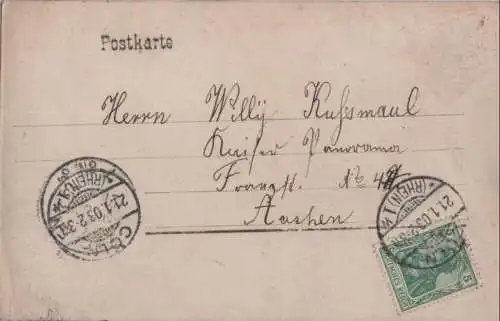 Postkarte
Herrn Willy Kuhsmaul
Kaiser Panorama
Franzst. No 48
Aachen
CÖLN
21.1.03.2-3N.
(RHEIN) 1.
(RHEIN) 1
21.1.03.2-3N.
5